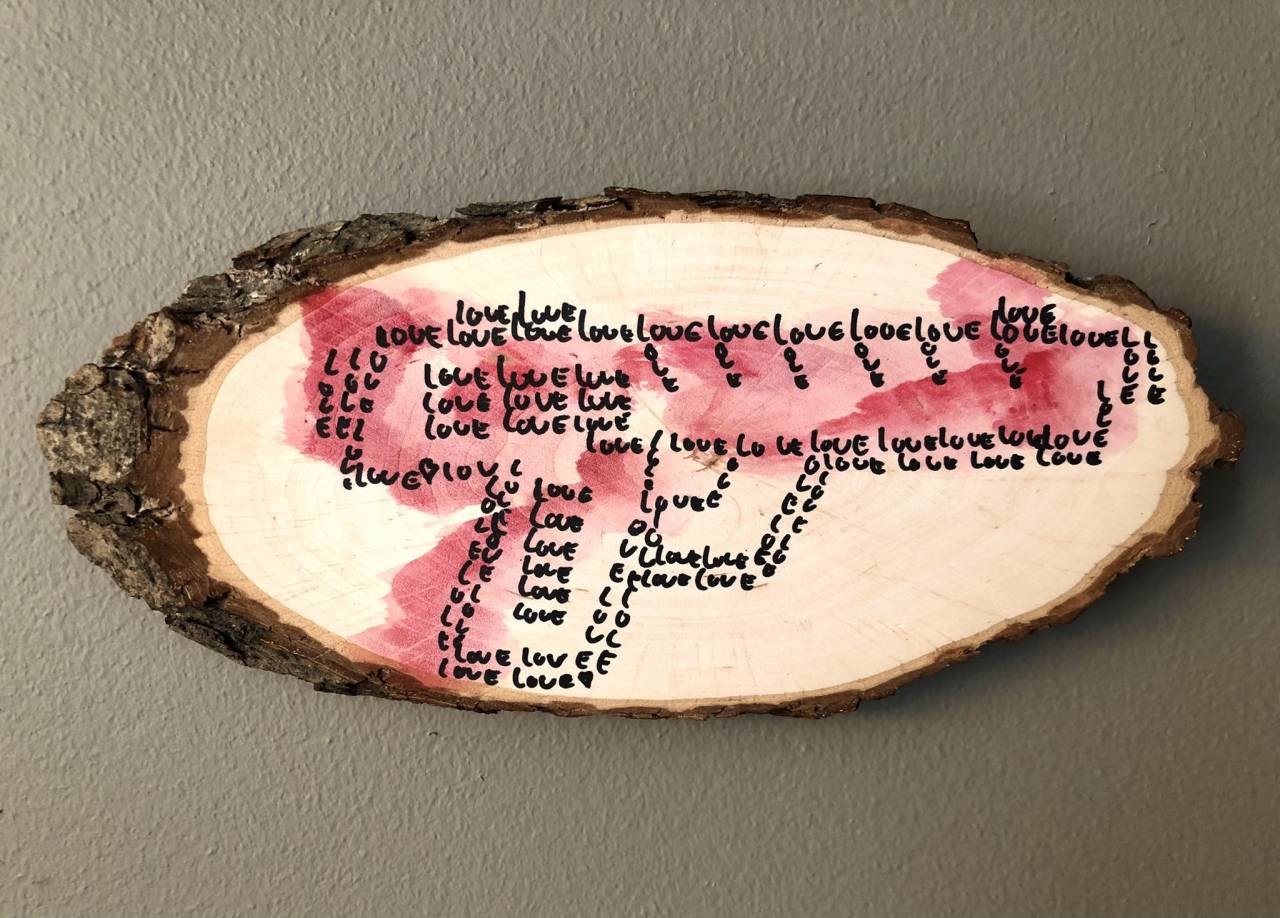 LOVE LOVE
LOVE LOVE LOVE LOVE LOVE LOVE LOVE LOVE LOVE LOVE LOVE
LOVE
LOVE LOVE LOVE
LOVE LOVE LOVE
LOVE LOVE LOVE
LOVE LOVE LOVE LOVE LOVE LOVE LOVE LOVE
LOVE LOVE LOVE LOVE
LOVE LOV
LOVE
LOVE
LOVE
LOVE
LOVE
LOVE
LOVE
LOVE LOVE
LOVE LOVE
LOVE LOVE
LOVE LOVE